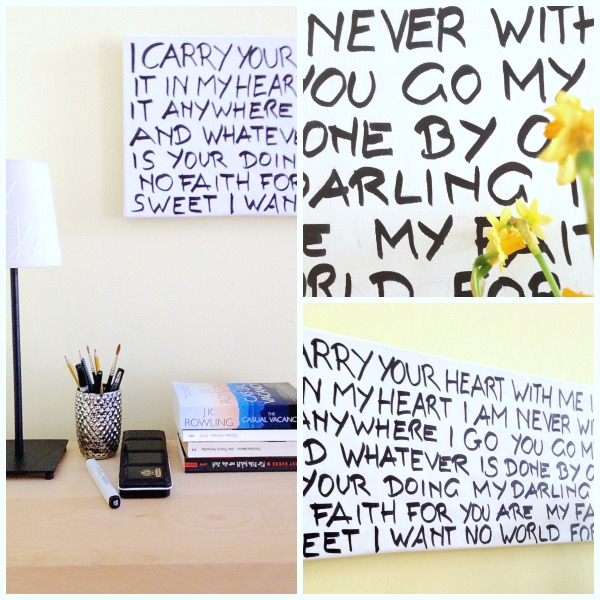 I CARRY YOUR
IT IN MY HEAR
IT ANYWHERE
AND WHATEVE
IS YOUR DOIN
NO FAITH FOR
SWEET I WAN
J.K.
ROWLING
THE
CASUAL VACANCY
NEVER WITH
YOU GO MY
DONE BY O
DARLING I
E MY FAIT
ORLD FOR
ARRY YOUR HEART WITH ME I
N MY HEART I AM NEVER WI
ANYWHERE I GO YOU GO M
D WHATEVER IS DONE BY O
YOUR DOING MY DARLING
FAITH FOR YOU ARE MY FA
EET I WANT NO WORLD FOR